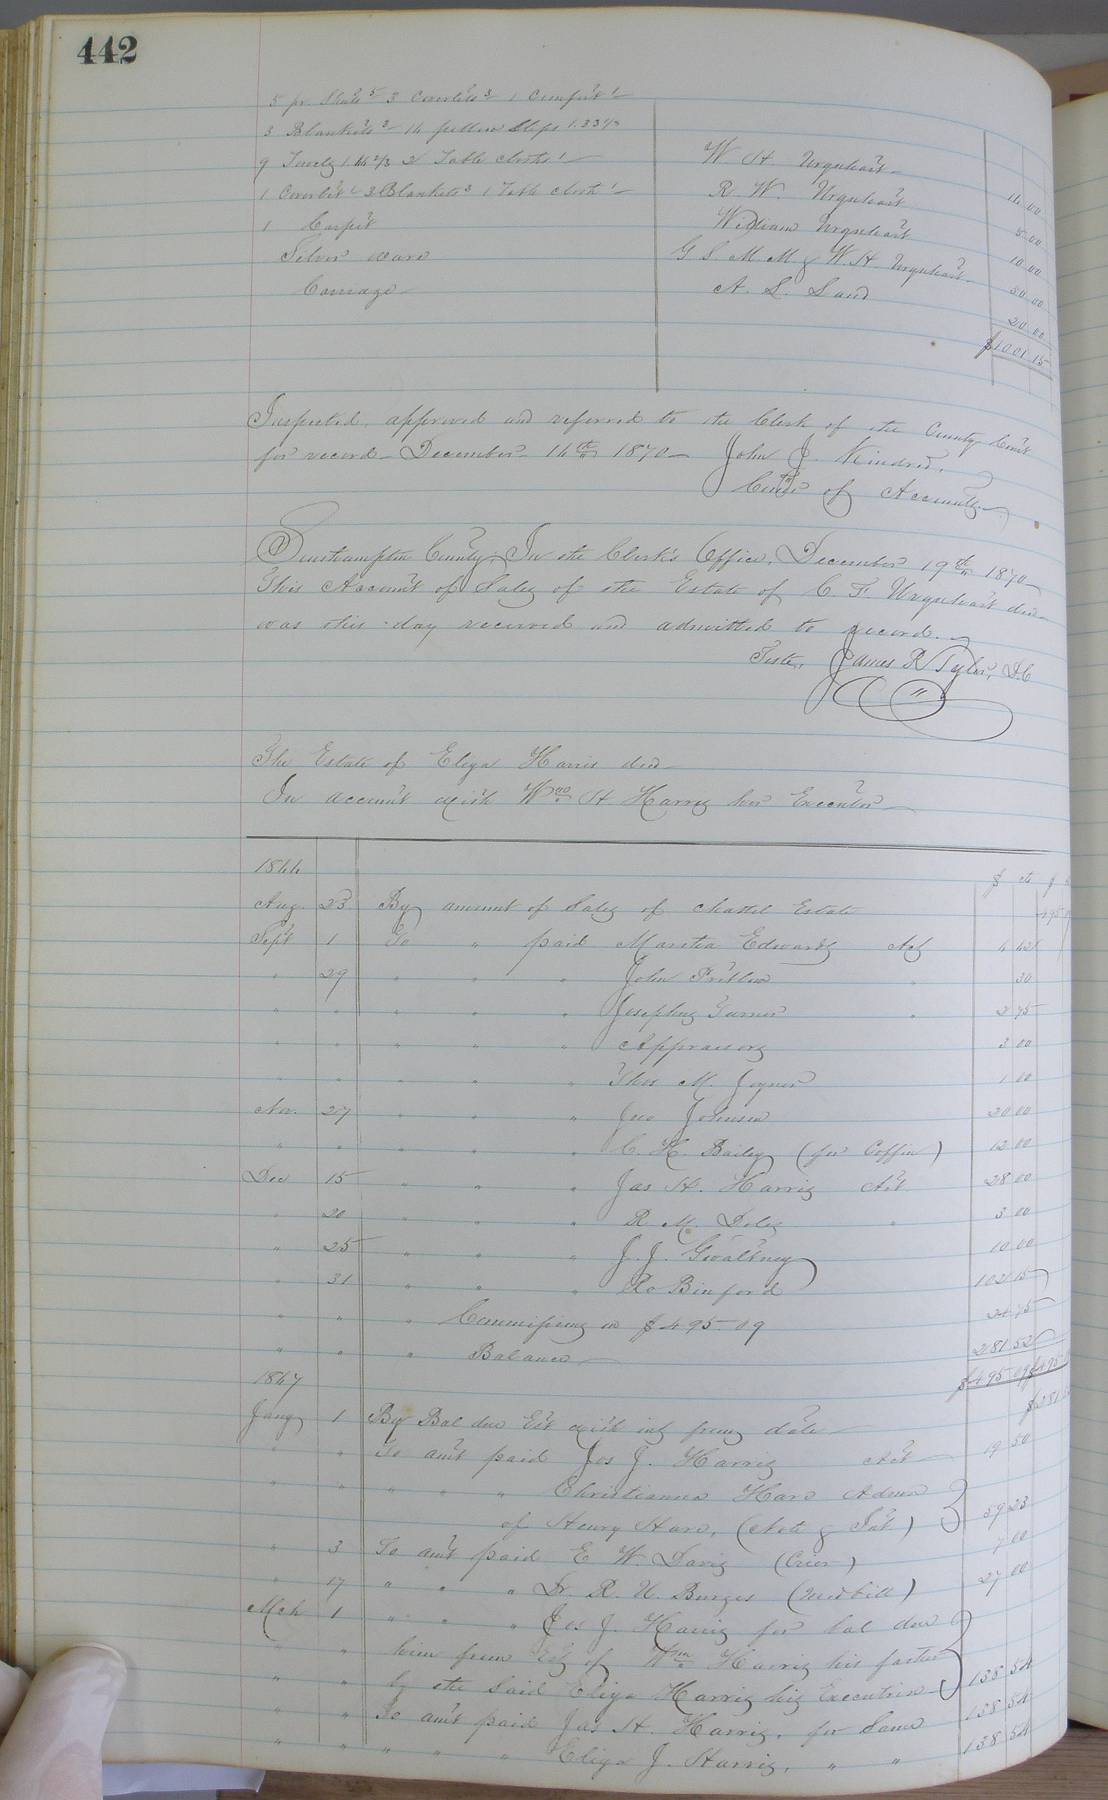 442
5 pr. Sheets 5 3 Coverlets 3 1 Comfort 1
3 Blankets 3 14 pillow Slips 1.33⅓
9 Towels 1.14⅔ 2 Table cloths 1
W H Urquhart 14 00
1 Coverlet 2 Blankets 1 Table cloth 1 R W. Urquhart 5 00
1 Carpet William Urquhart 10 00
Silver ware G S M. M & W. H. Urquhart 50 00
Carriage A. L. Land 20 00
$1001 15
Inspected, approved and referred to the Clerk of the County Court
for record December 14th 1870 John J. Kindred,
Comr of Accounts
Southampton County, In the Clerk's Office, December 19th 1870
This Account of Sales of the Estate of C. F. Urquhart decd
was this day received and admitted to record.
Teste, James R Tyler, D.C
The Estate of Eliza Harris decd
In account with Wm H Harris her Executor
1844 $ cts $
Aug. 23 By amount of Sales of chattel Estate 495
Sept 1 To " paid Marita Edwards Act 4 42
" 29 " " " John Pretlow " 30
" " " " " Josephus Turner " 2 75
" " " " " Appraisers 3 00
" " " " " Thos M. Joyner 1 00
Nov. 27 " " " Jno Johnson 20 00
" " " " " C. H. Bailey (for Coffin) 12 00
Dec 15 " " " Jas H. Harris Act 28 00
" 20 " " " R. M. Doles " 3 00
" 25 " " " J. J. Gwaltney 10 00
" 31 " " " Ro Binford 102 15
" " " Commissions on $495.09 24 75
" " " Balance 281 52
$495 09 $495
1847 $281
Jany 1 By Bal due Est with int from date
" " To amt paid Jos J. Harris Act 19 50
" " " " " Christianna Hare Admx
of Henry Hare, (Note & Int) 59 23
" 3 To amt paid E W. Davis (Crier) 7 00
" 17 " " " Dr. R. U. Burges (Med bill) 27 00
Mch 1 " " " Jos J. Harris for bal due
" " him from Est of Wm Harris his father
" " by the said Eliza Harris his Executrix 138 54
" " To amt paid Jas H. Harris, for Same 138 54
" " " " " Eliza J. Harris, " " 138 54